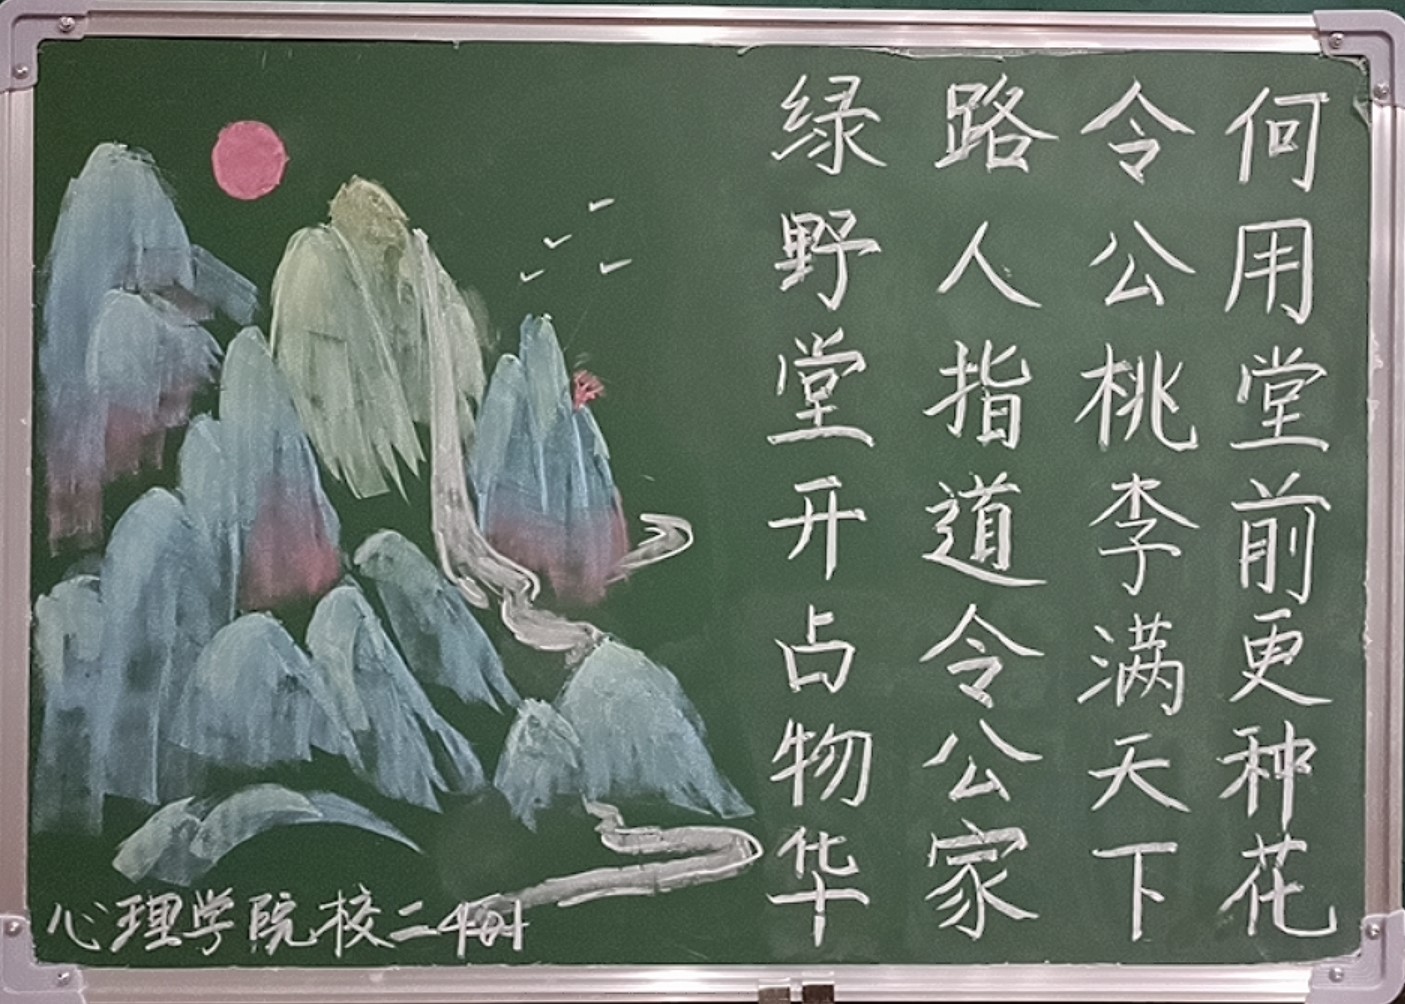 绿野堂开占物华
路人指道令公家
令公桃李满天下
何用堂前更种花
心理学院校二401